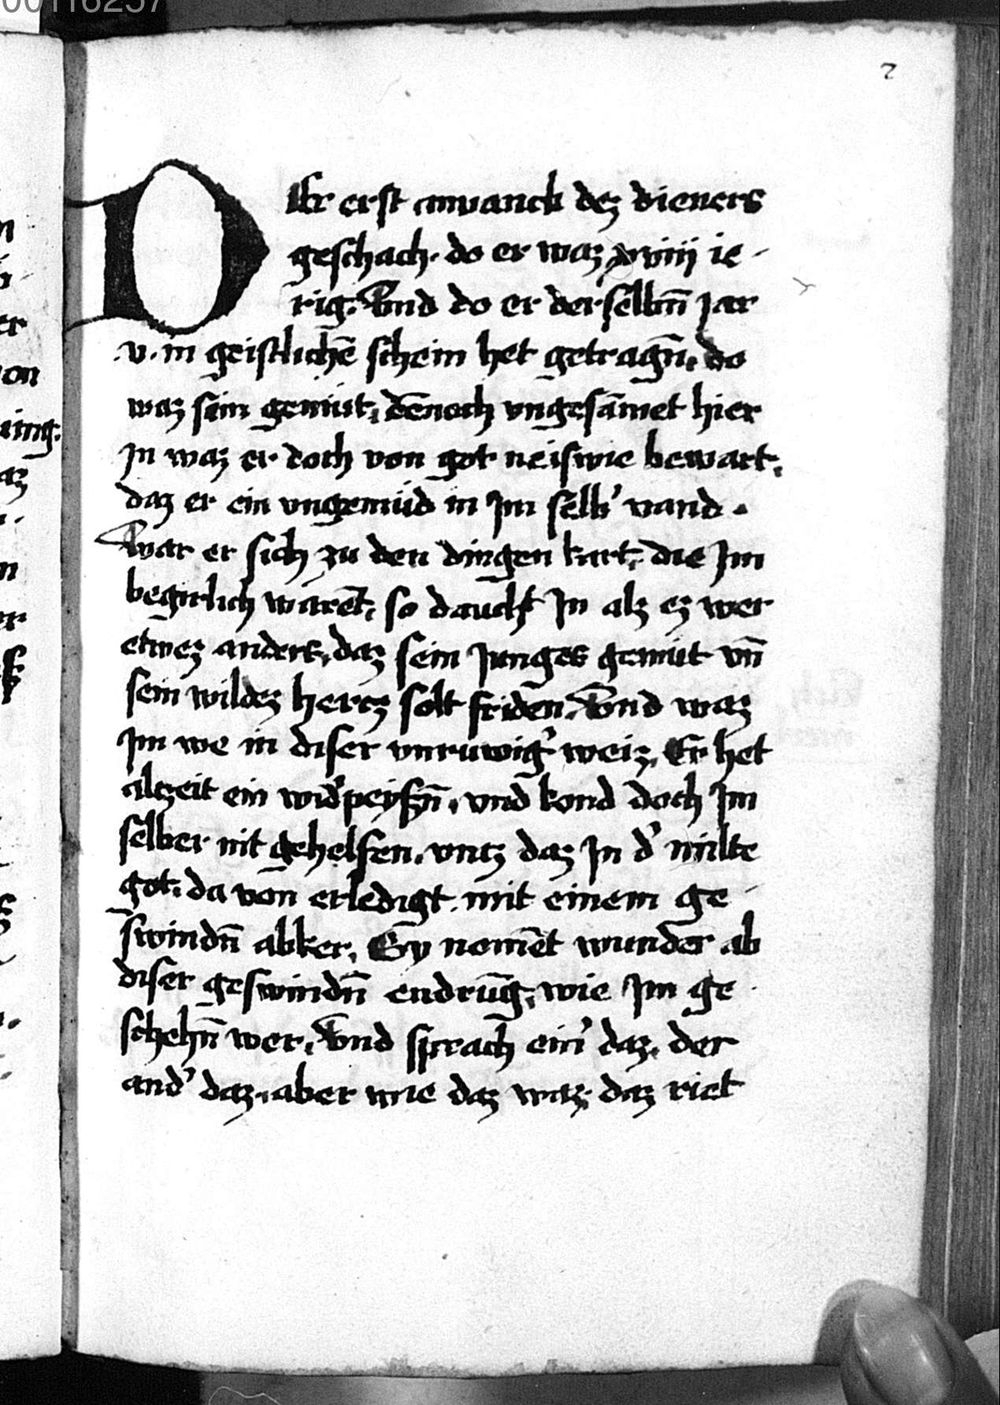 00116257
2
DEr erst anvanck dez dieners
geschach. do er waz xviiij ie-
rig. Vnd do er derselbn̄ jar
.v. in geistlichē schein het getragn̄. do
waz sein gemüt, dēnoch vngesāmet hier
Jn waz er doch von got neiswie bewart,
daz er ein vngemüd in Jm selb' vand.
War er sich zu den dingen kart, die Jm
begirlich warēt, so daucht Jn alz ez wer
etwez anders, daz sein Junges gemüt vn̄
sein wildez hertz solt friden. Vnd waz
Jm we in diser vnruwig' weiz. Er het
alczeit ein wid'peyszn̄. vnd kond doch Jm
selber nit gehelfen. vntz daz Jn d' milte
got. da von erledigt mit einem ge-
swindn̄ abker. Sy nomēt wunder ab
diser geswindn̄ endrūg, wie Jm ge
schehn̄ wer. Vnd sprach ein' daz. der
and' daz. aber wie daz waz daz riet